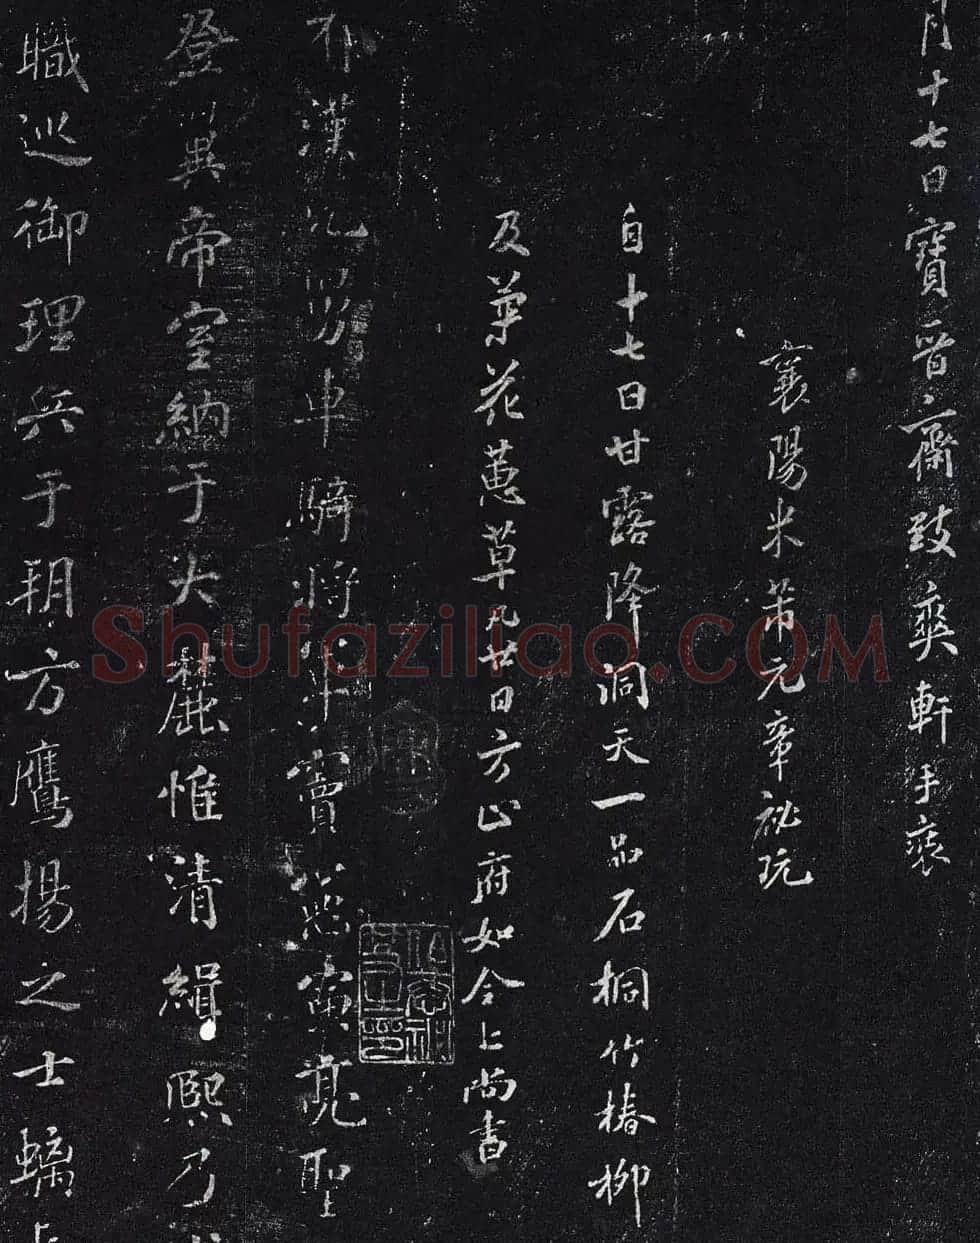 月十七日寶晉齋致爽軒手裝
襄陽米芾元章祕玩
自十七日甘露降洞天一品石桐竹椿柳
及蕉花蕙草凡廿日方止府如今上尚書
漢元舅車騎將軍竇憲寅亮聖
登翼帝室納于大麓惟清緝熙乃
職巡御理兵于朔方鷹揚之士螭
Shufaziliao.COM